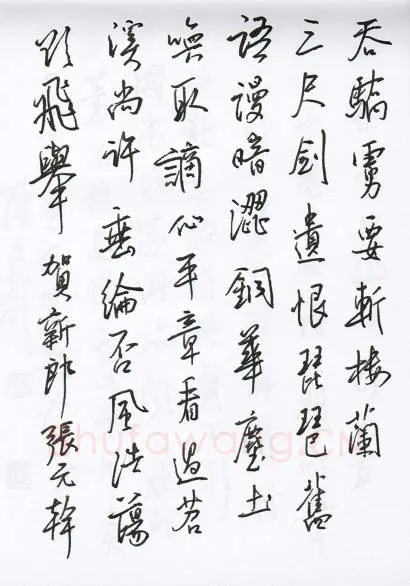 吞驕虜要斬樓蘭
三尺劍遺恨琵琶舊
語謾暗澀銅華塵土
喚取謫仙平章看過苕
溪尚許垂綸否風浩蕩
欲飛舉 賀新郎 張元幹
shufawang.CN